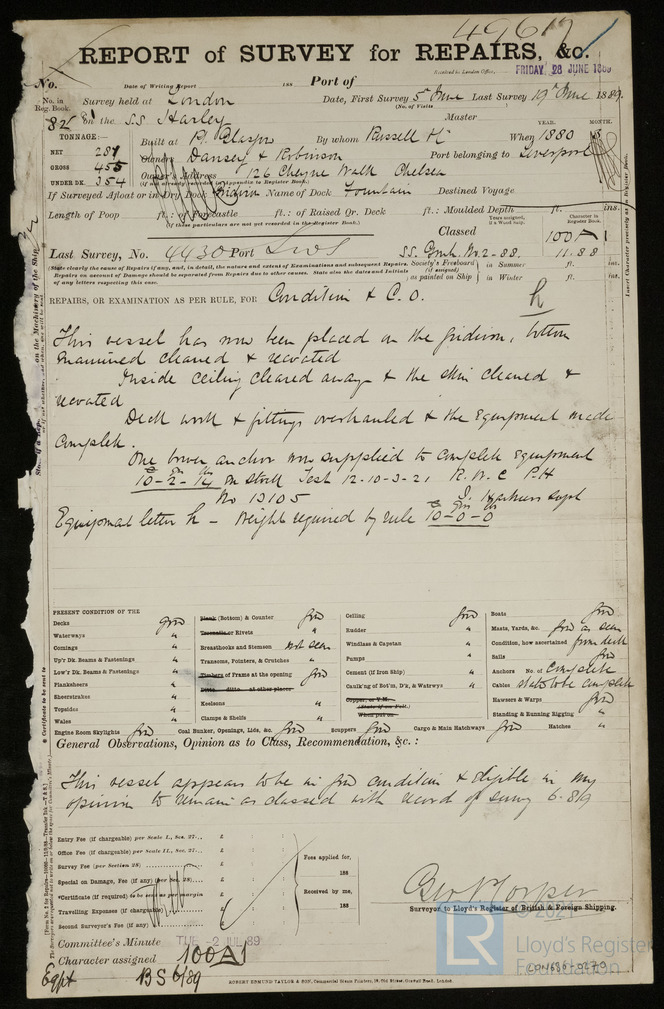 49617
REPORT of SURVEY for REPAIRS, &c.
Received in London Office, FRIDAY 28 JUNE 1889
No.
Date of Writing Report 188 Port of
No. in Reg. Book. Survey held at London Date, First Survey 5th June Last Survey 19th June 1889.
(No. of Visits)
82 on the S.S. Harley Master
TONNAGE:
NET 289
GROSS 455
UNDER DK. 354
Built at Pt Glasgow By whom Russell & Co When YEAR. 1880 MONTH. 8
Owners Dansey & Robinson Port belonging to Liverpool
Owner's Address 126 Cheyne Walk Chelsea
(if not already recorded in Appendix to Register Book.)
If Surveyed Afloat or in Dry Dock Gridiron Name of Dock Fountain Destined Voyage
Length of Poop ft.: of Forecastle ft.: of Raised Qr. Deck ft.: Moulded Depth ft. ins.
(If these particulars are not yet recorded in the Register Book.)
Classed 100A1
Character in Register Book.
Last Survey, No. 4430 Port Lvl S.S. No. 2-88. 11.88
Society's Freeboard (if assigned) as painted on Ship in Summer ft. ins.
in Winter ft. ins.
(State clearly the cause of Repairs if any, and, in detail, the nature and extent of Examinations and subsequent Repairs.
Repairs on account of Damage should be separated from Repairs due to other causes. State also the dates and Initials
of any letters respecting this case.
REPAIRS, OR EXAMINATION AS PER RULE, FOR Condition & C.O.
h
This vessel has now been placed on the gridiron, bottom
examined cleaned & recoated
Inside ceiling cleared away & the skin cleaned &
recoated
Deck work & fittings overhauled & the Equipment made
complete.
One bower anchor now supplied to complete Equipment
10-2-14 on stock Test 12-10-3-21 R.W.C P.H
No 13105 Supt
Equipment letter h - Weight required by rule 10-0-0
PRESENT CONDITION OF THE
Decks good
Waterways "
Comings "
Up'r Dk. Beams & Fastenings "
Low'r Dk. Beams & Fastenings "
Planksheers "
Sheerstrakes "
Topsides "
Wales "
Engine Room Skylights good
Plank (Bottom) & Counter good
Treenails or Rivets "
Breasthooks and Stemson not seen
Transoms, Pointers, & Crutches "
Timbers of Frame at the opening good
Ditto ditto at other places
Keelsons "
Clamps & Shelfs "
Coal Bunker, Openings, Lids, &c. good
Ceiling good
Rudder "
Windlass & Capstan "
Pumps "
Cement (if Iron Ship) "
Caulk'ng of Bot'm, D'k, & Watrwys "
Copper, or Y.M.
(State if on Felt.)
When put on
Scuppers good Cargo & Main Hatchways good
Boats good
Masts, Yards, &c. good as seen
Condition, how ascertained from deck
Sails good
Anchors No. of Complete
Cables stated to be complete
Hawsers & Warps good
Standing & Running Rigging "
Hatches "
General Observations, Opinion as to Class, Recommendation, &c.:
This vessel appears to be in good condition & eligible in my
opinion to remain as classed with record of survey 6.89
Entry Fee (if chargeable) per Scale I., Sec. 27... £ : :
Office Fee (if chargeable) per Scale II., Sec. 27... £ : :
Survey Fee (per Section 28) £ : :
Special on Damage, Fee (if any) (per Sec. 28)... £ : :
*Certificate (if required) to be sent as per margin
Travelling Expenses (if chargeable) £ : :
Second Surveyor's Fee (if any) £ : :
Fees applied for,
188
Received by me,
188
Surveyor to Lloyd's Register of British & Foreign Shipping.
Committee's Minute TUE 2 JUL 89
Character assigned 100A1
Egpt BS 6/89
ROBERT EDMUND TAYLOR & SON, Commercial House Printers, 19, Old Street, Goswell Road, London.
© 2021
LR
Lloyd's Register
Foundation
LON680-0279